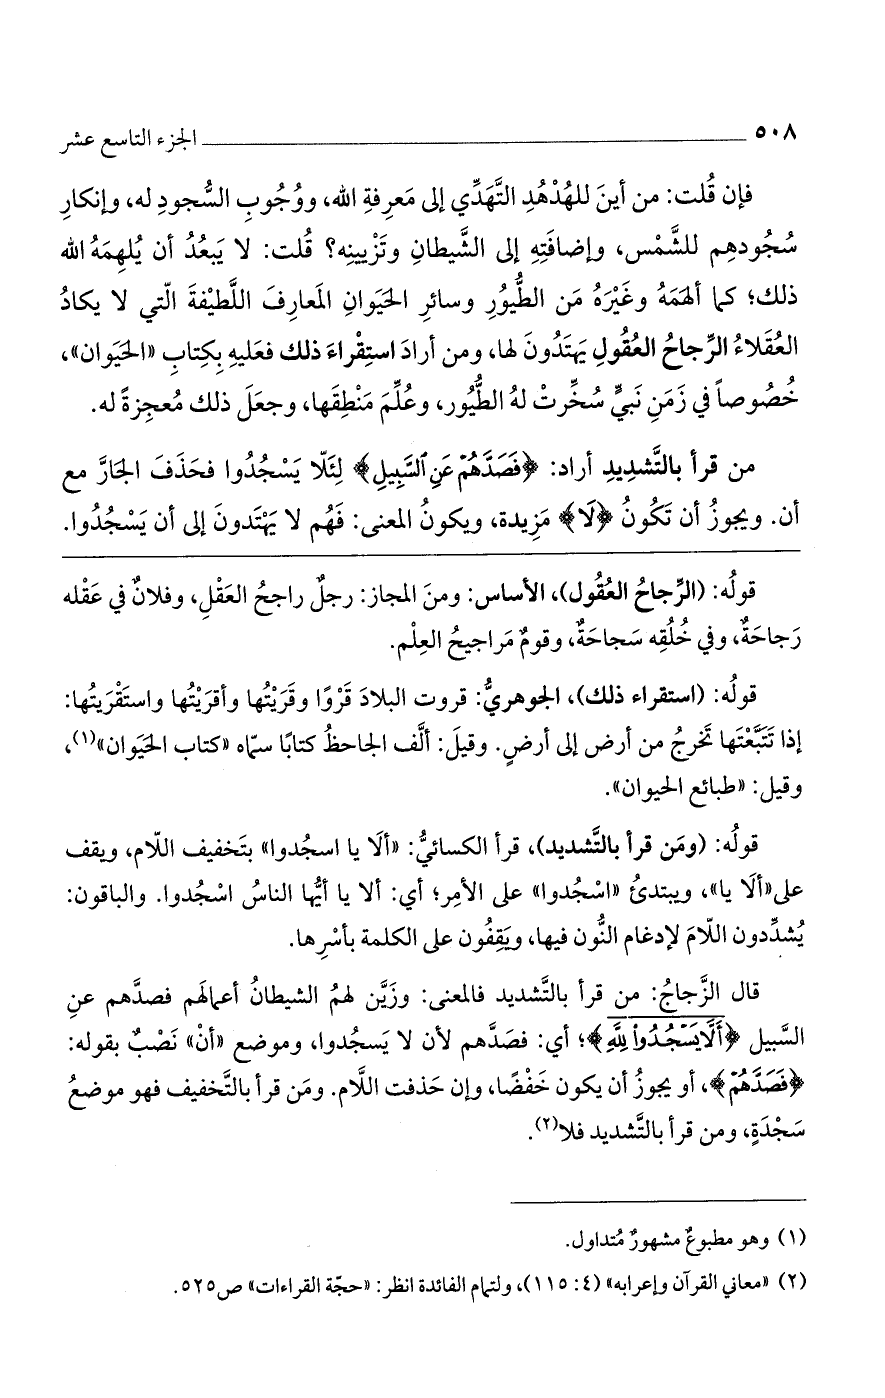 ٥٠٨ الجزء التاسع عشر
فإن قُلت: من أينَ للهُدْهُدِ التَّهَدِّي إلى مَعرِفةِ الله، ووُجُوبِ السُّجودِ له، وإنكارِ
سُجُودهِم للشَّمْس، وإضافَتِهِ إلى الشَّيطانِ وتَزْيينِه؟ قُلت: لا يَبعُدُ أن يُلهِمَهُ الله
ذلك؛ كما ألهَمَهُ وغَيْرَهُ مَن الطُّيُورِ وسائرِ الحَيَوانِ المَعارِفَ اللَّطِيْفةَ الّتي لا يكادُ
العُقَلاءُ الرِّجاحُ العُقُولِ يَهتَدُونَ لها، ومن أرادَ استِقْراءَ ذلك فعَليهِ بِكِتابِ «الحَيَوان»،
خُصُوصاً في زَمَنِ نَبيٍّ سُخِّرتْ لهُ الطُّيُور، وعُلِّمَ مَنْطِقَها، وجعَلَ ذلك مُعجِزةً له.
من قرأ بالتَّشدِيدِ أراد: ﴿فَصَدَّهُمْ عَنِ ٱلسَّبِيلِ﴾ لِئَلّا يَسْجُدُوا فحَذَفَ الجَارَّ مع
أن. ويجوزُ أن تَكُونُ ﴿لَا﴾ مَزِيدة، ويكونُ المعنى: فَهُم لا يَهْتَدونَ إلى أن يَسْجُدُوا.
قولُه: (الرِّجاحُ العُقُول)، الأساس: ومنَ المجاز: رجلٌ راجحُ العَقْلِ، وفلانٌ في عَقْله
رَجاحَةٌ، وفي خُلُقِه سَجاحَةٌ، وقومٌ مَراجيحُ العِلْم.
قولُه: (استقراء ذلك)، الجوهريُّ: قروت البلادَ قَرْوًا وقَرَيْتُها وأقرَيْتُها واستَقْرَيتُها:
إذا تَتَبَّعْتَها تَخرجُ من أرض إلى أرضٍ. وقيلَ: ألَّف الجاحظُ كتابًا سمّاه «كتاب الحَيَوان»(١)،
وقيل: «طبائع الحيوان».
قولُه: (ومَن قرأ بالتَّشديد)، قرأ الكسائيُّ: «ألَا يا اسجُدوا» بتَخفيف اللّام، ويقف
على«ألَا يا»، ويبتدئُ «اسْجُدوا» على الأمِر؛ أي: ألا يا أيُّها الناسُ اسْجُدوا. والباقون:
يُشدِّدون اللّامَ لإدغام النُّون فيها، ويَقِفُون على الكلمة بأسْرِها.
قال الزَّجاجُ: من قرأ بالتَّشديد فالمعنى: وزَيَّن لهمُ الشيطانُ أعمالهَم فصدَّهم عنِ
السَّبيل ﴿أَلَّا يَسْجُدُوا۟ لِلَّهِ﴾؛ أي: فصَدَّهم لأن لا يَسجُدوا، وموضع «أنْ» نَصْبٌ بقوله:
﴿فَصَدَّهُمْ﴾، أو يجوزُ أن يكون خَفْضًا، وإن حَذفت اللَّام. ومَن قرأ بالتَّخفيف فهو موضعُ
سَجْدَةٍ، ومن قرأ بالتَّشديد فلا(٢).
(١) وهو مطبوعٌ مشهورٌ مُتداول.
(٢) «معاني القرآن وإعرابه» (٤: ١١٥)، ولتمام الفائدة انظر: «حجّة القراءات» ص٥٢٥.